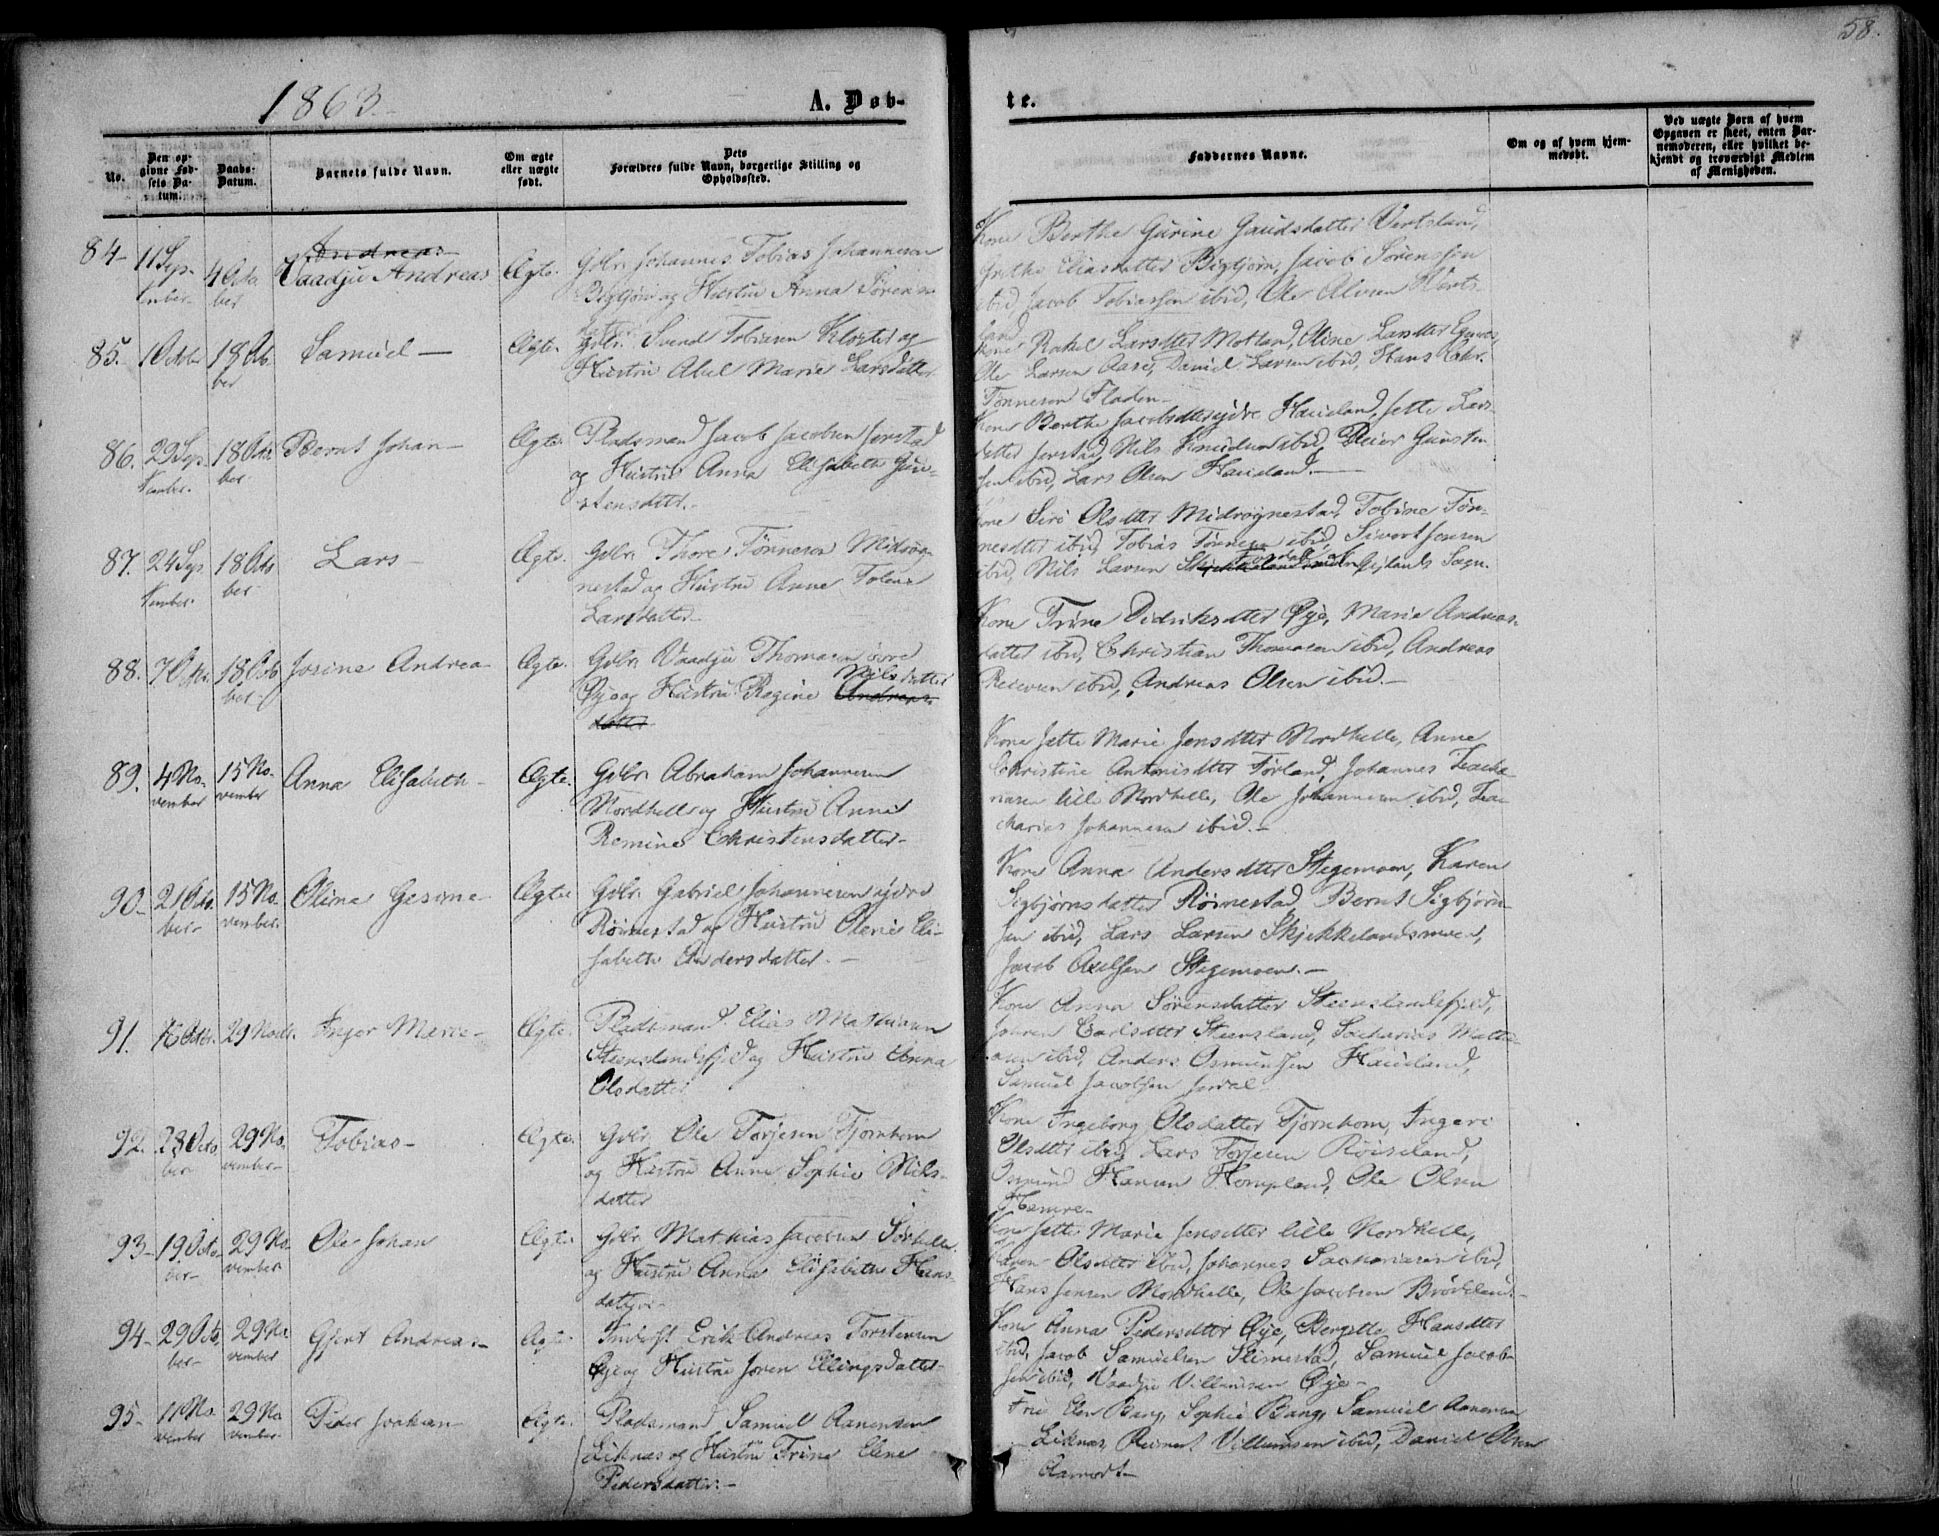 58.
1863.
A. Døb-
te.
No.
Den op-
givne Fød-
sels Da-
tum.
Daabs-
Datum.
Barnets fulde Navn.
Om ægte
eller uægte
født.
Dets
Forældres fulde Navn, borgerlige Stilling og
Opholdssted.
Faddernes Navne.
Om og af hvem hjem-
medøbt.
Ved uægte Børn af hvem
Opgaven er skeet, enten Bar-
nemoderen, eller hvilket be-
kjendt og troværdigt Medlem
af Menigheden.
84-
11 Sep-
tember
4 Octo
ber
Andreas
Vaadju Andreas
Ægte.
Gdbr. Johannes Tobias Johannesen
Bigbjørn og Hustru Anna Sørens-
datter
Kone Berthe Gurine Gaudsdatter
Grethe Eliasdatter Bigbjørn, Jacob Sørenssen
ibid, Jacob Tobiassen ibid, Ole Olsen
land
85.
1 Octob
18 Octo
ber
Samuel
Ægte.
Gdbr. Svend Tobiasen Kloster og
Hustru Abel Marie Larsdatter
Kone Rakel Larsdtter Motland, Oline Larsdtter
Ole Larsen Aase, Daniel Larsen ibid, Hans
Tønnesen Fladen
86.
29 Sep-
tember.
18 Octo
ber
Bernt Johan
Ægte.
Pladsmand Jacob Jacobsen Jerstad
og Hustru Anna Elisabeth Gun-
stensdatt.
Kone Berthe Jacobsdtter ydre Haugland, Jette Lars-
datter Jerstad, Nils Knudsen ibid, Reier Gunsten
sen ibid, Lars Olsen Haugland.
87.
24 Sep
tember.
18 Octo
ber
Lars
Ægte.
Gdbr. Thore Tønnesen Midrøg-
nestad og Hustru Anne Tolene
Larsdatter
Kone Siri Olsdtter Midrøgnestad, Tobine Tøn-
nesdtter ibid, Tobias Tønnesen ibid, Sivert Jensen
ibid, Nils Larsen Gyland Sogn.
88.
7 Octbr.
18 Octo
ber
Josine Andrea
Ægte.
Gdbr. Vaadju Thomasen øvre
Øye og Hustru Regine Nilsdatter
Andreas-
datter
Kone Trine Didriksdatter Øye, Marie Andreas-
datter ibid, Christian Thomasen ibid, Andreas
Reiersen ibid, Andreas Olsen ibid.
89.
4 No-
vember
15 No-
vember
Anna Elisabeth
Ægte.
Gdbr. Abraham Johannesen
Nordhelle og Hustru Anna
Romine Christensdatter
Kone Jette Marie Jensdtter Nordhelle, Anne
Christine Antonisdtter Førland, Johannes Zacha-
riasen lille Nordhelle, Ole Johannesen ibid, Zac
charias Johannesen ibid.
90-
21 Octo
ber
15 No.
vember.
Olina Gesine
Ægte
Gdbr. Gabriel Johannesen ydre
Røinestad og Hustru Olene Eli-
sabeth Andersdatter.
Kone Anna Andersdtter Stegemoen, Karen
Sigbjørnsdatter Røinestad, Bernt Sigbjørn-
sen ibid, Lars Larsen Skjekkelandsmoen,
Jacob Axelsen Stegemoen.
91.
Octbr.
29 Novbr.
Inger Marie
Ægte.
Pladsmand Elias Mathiasen
Steenslandsfjeld og Hustru Anna
Olsdatter
Kone Anna Sørensdatter Steenslandsfjeld,
Carlsdtter Steensland, Zacharias Mathi-
asen ibid, Anders Osmundsen Haugland,
Samuel Jacobsen
92.
23 Octo
ber
29 No.
vember
Tobias
Ægte.
Gdbr. Ole Torjesen Fjornhom
og Hustru Anne Sophie Nils-
datter
Kone Ingeborg Olsdatter Fjørnhom, Ingeri
Olsdtter ibid, Lars Torjesen Røiseland,
Osmund Hansen Kompland, Ole Olsen
Hamre
93-
19 Octo
ber
29 No.
vember
Ole Johan
Ægte.
Gdbr. Mathias Jacobsen Sørhelle
og Hustru Anna Elisabeth Hans-
datter
Kone Jette Marie Jensdtter lille Nordhelle,
Karen Olsdtter ibid, Johannes Sachariasen ibid,
Hans Jensen Nordhelle, Ole Jacobsen Brødeland
94-
29 Octo
ber
29 No
vember
Gjert Andreas
Ægte
Inderst Erik Andreas Torstensen
Øye og Hustru Joren Ellingsdatter
Kone Anna Pedersdtter Øye, Bergitte Hansdtter
ibid, Jacob Samuelsen Slimestad, Samuel Jacob-
sen ibid, Vaadju Villumsen Øye
95-
11 No.
vember
29 No
vember
Peder Joakim
Ægte.
Pladsmand Samuel Aanensen
Liknæs og Hustru Trine Elene
Pedersdatter.
Fru Elen Bang, Sophie Bang, Samuel Aanensen
Liknæs, Reinert Villumsen ibid, Daniel Olsen
Aamodt